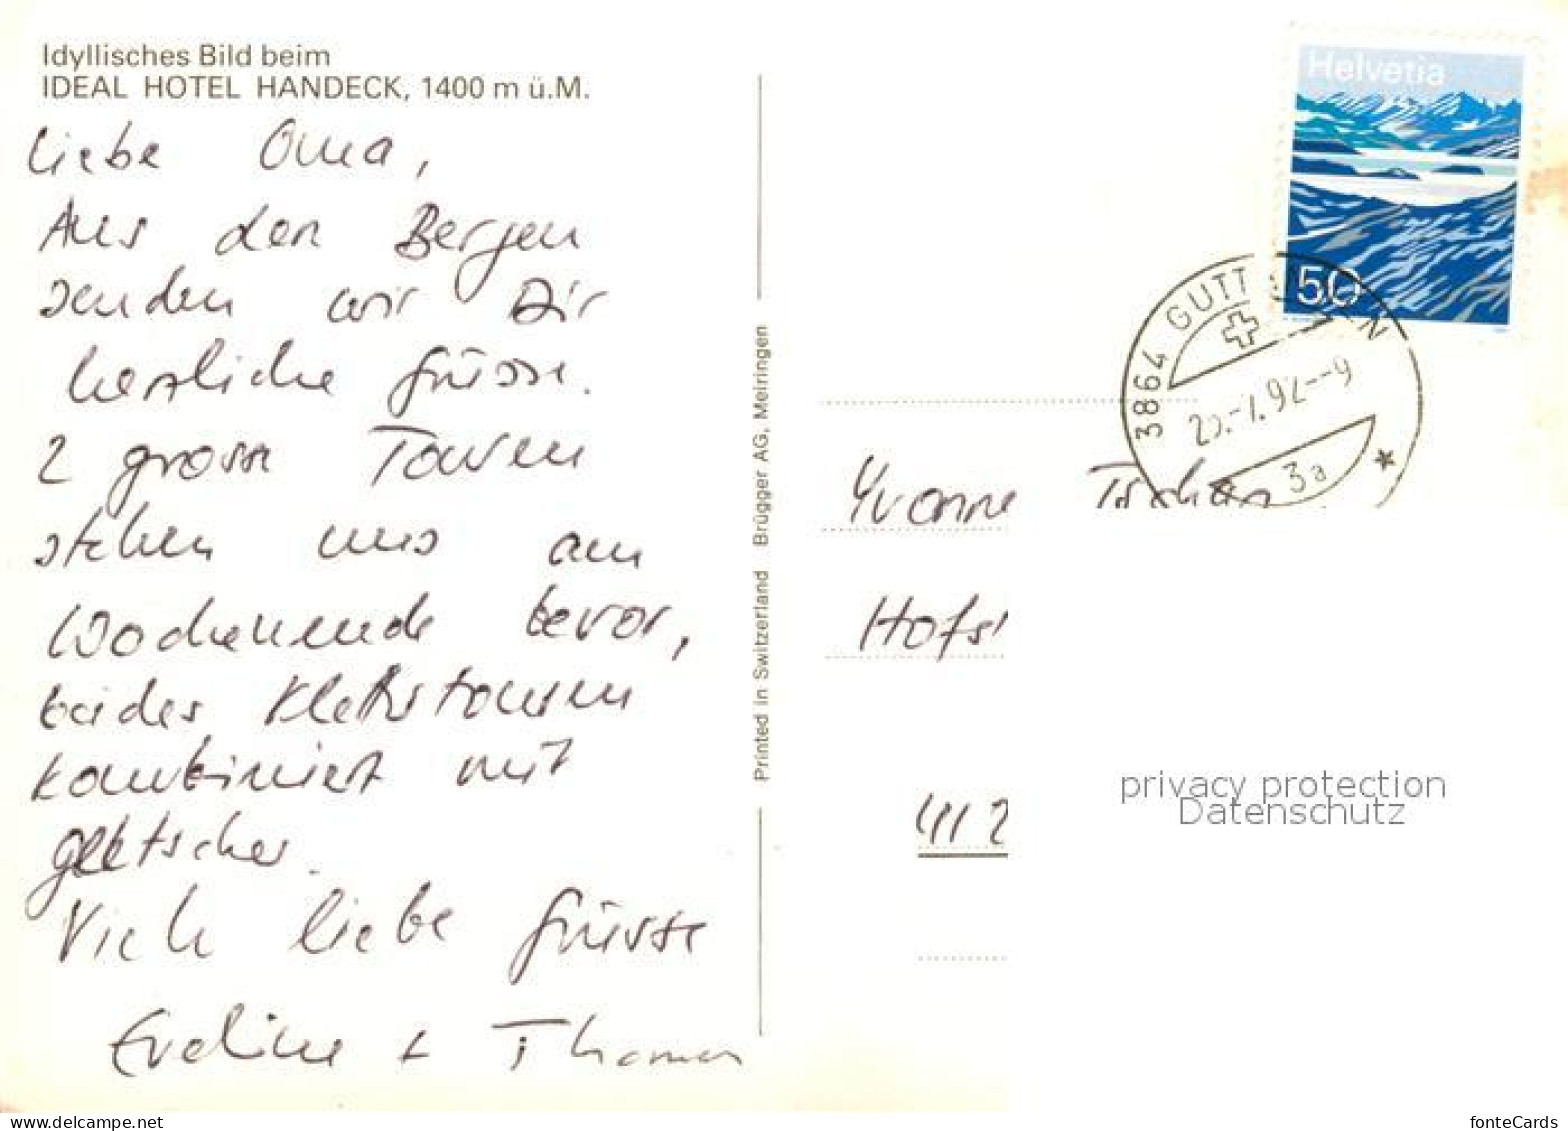 Idyllisches Bild beim
IDEAL HOTEL HANDECK, 1400 m ü.M.
Liebe Oma,
Aus den Bergen
senden wir Dir
herzliche Grüsse.
2 grosse Touren
stehen uns am
Wochenende bevor,
beides Kletterstouren
kombiniert mit
Gletscher.
Viele liebe Grüsse
Eveline + Thomas
Printed in Switzerland Brügger AG, Meiringen
Helvetia
50
3864 GUTTANNEN
-7.92--9
3a
Yvonne Tschan
Hofs
4112
privacy protection
Datenschutz
fonteCards